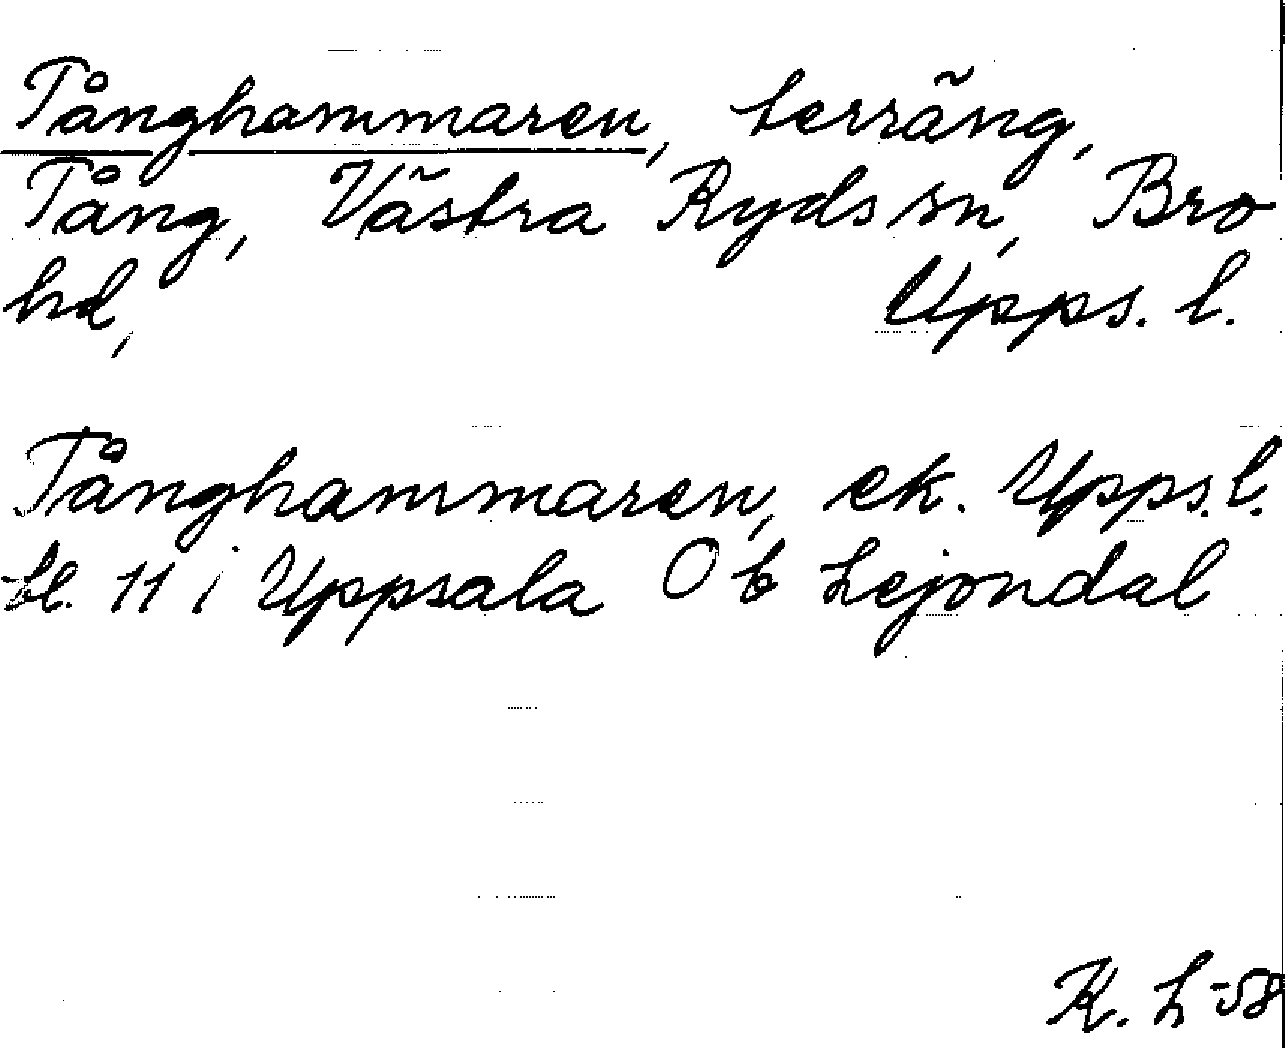 Tånghammaren, terräng,
Tång, Västra Ryds sn, Bro
hd, Upps. l.
Tånghammaren, ek. Upps. l.
bl. 11 i Uppsala Ob Lejondal
K. L-58